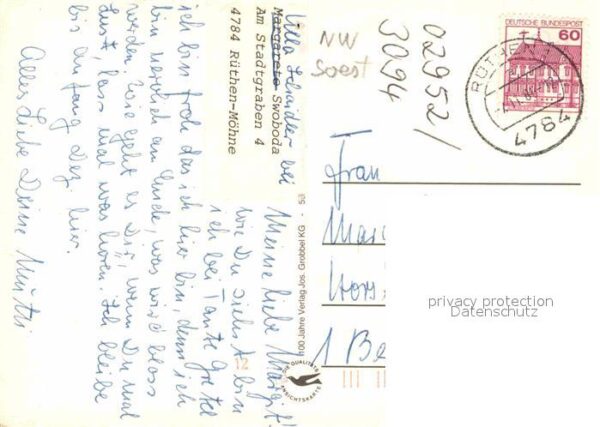 Meine liebe Margit!
wie Du siehst bin
ich bei Tante Gretel
ich bin froh das ich hier bin, denn ich
bin seelisch am Ende, was wird bloss
werden. Wie geht es Dir, wenn Du mal
Lust, lass mal was hören. Ich bleibe
bis anfang Dez. hier.
Alles Liebe Deine Mutti
bei
Margarete Swoboda
Am Stadtgraben 4
4784 Rüthen-Möhne
NW
Soest
02952/
3094
DEUTSCHE BUNDESPOST
60
RÜTHEN 1
4784
100 Jahre Verlag Jos. Grobbel KG
DIE QUALITÄTS
ANSICHTSKARTE
12
Frau
1 Be
privacy protection
Datenschutz